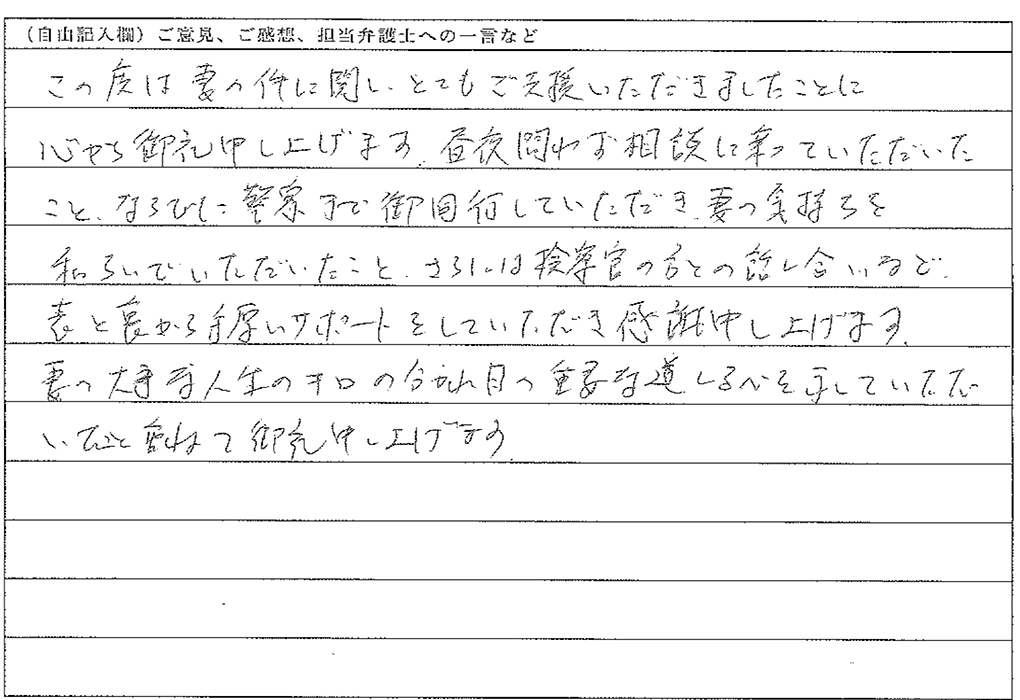 （自由記入欄）ご意見、ご感想、担当弁護士への一言など
この度は妻の件に関し、とてもご支援いただきましたことに
心から御礼申し上げます。昼夜問わず相談に乗っていただいた
こと、ならびに警察まで御同行していただき、妻の気持ちを
和らいでいただいたこと、さらには検察官の方との話し合いなど、
表と裏から手厚いサポートをしていただき感謝申し上げます。
妻の大事な人生のキロの分かれ目の重要な道しるべを示していただ
いたこと重ねて御礼申し上げます。